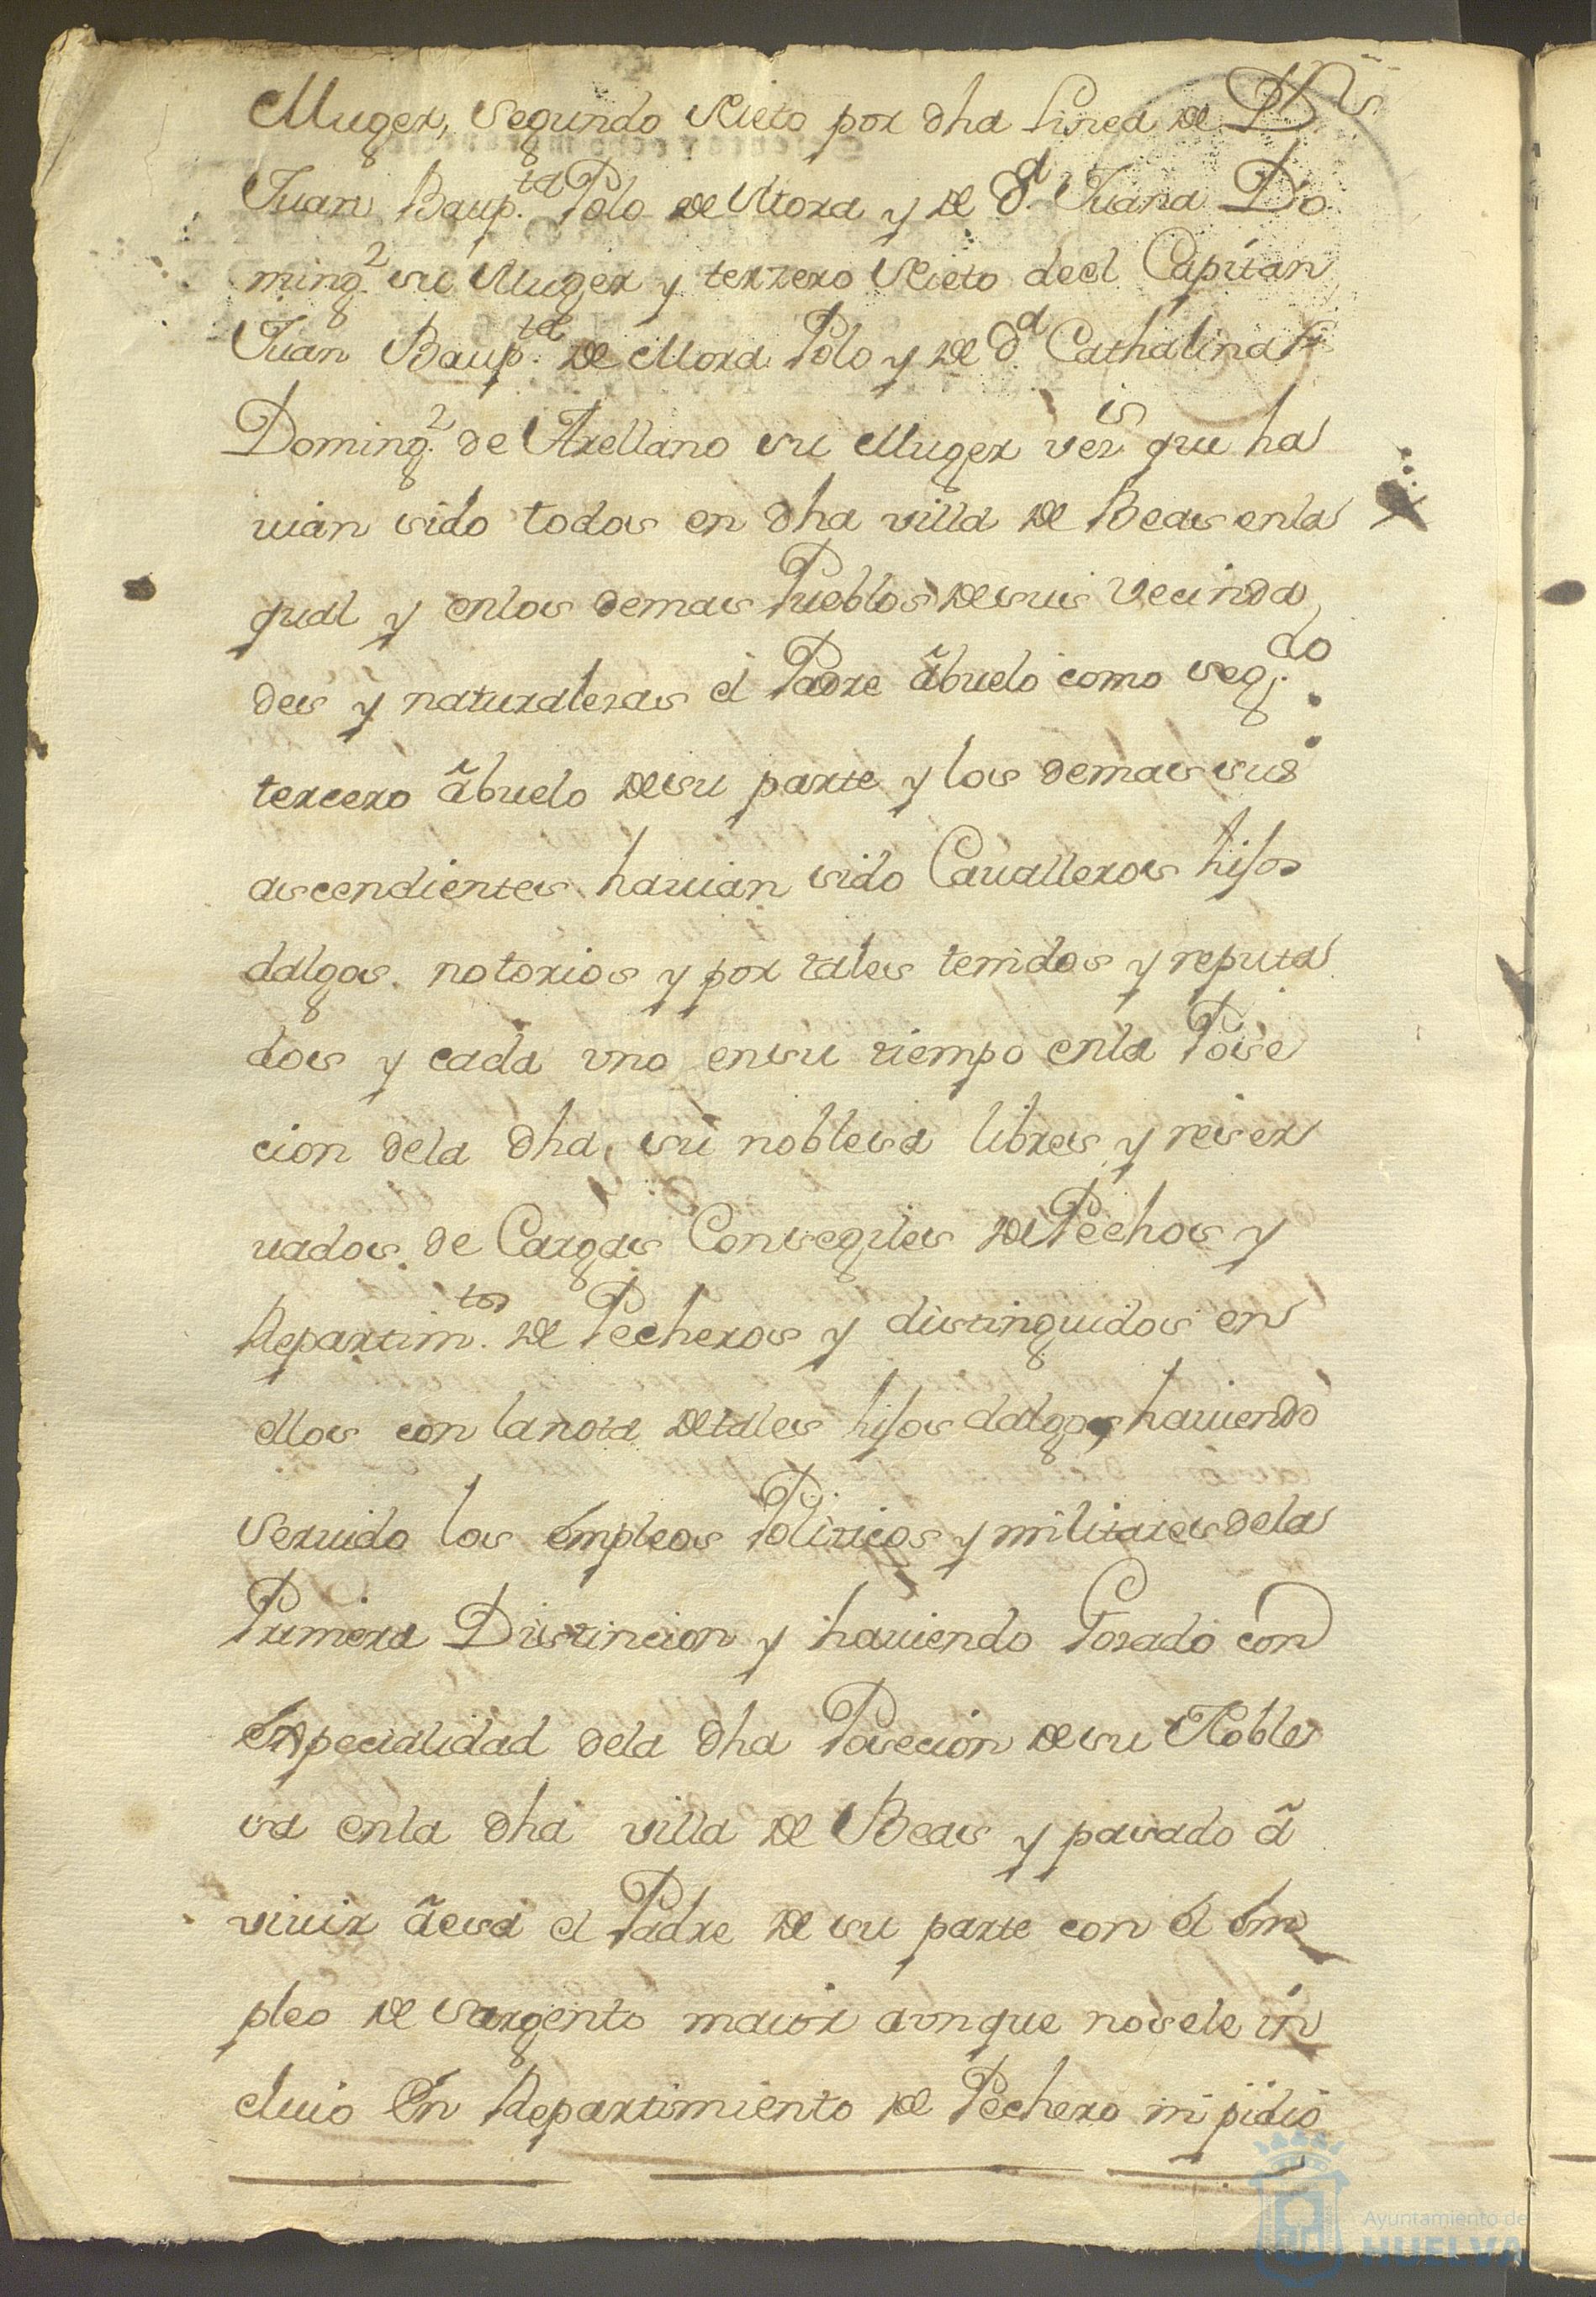 Muger, Segundo Nieto por dha Linea de Dn
Juan Baup.ta Polo de Mora y de d.a Juana Do
ming.z su Muger y terzero Nieto deel Capitan
Juan Baup.ta de Mora Polo y de d.a Cathalina
Doming.z de Arellano su Muger vez.s que ha
uian sido todos en dha villa de Beas enla
qual y enlos demas Pueblos desus Vecinda
des y naturalezas el Padre abuelo como seg.do
tercero abuelo desu parte y los demas sus
ascendientes hauian sido Caualleros hijos
dalgos notorios y por tales tenidos y reputa
dos y cada vno ensu tiempo enla Pose
cion dela dha su noblesa libres y reser
uados de Cargas Consegiles de Pechos y
Repartim.tos de Pecheros y distinguidos en
ellos con lanota detales hijos dalgos, hauiendo
seruido los empleos Politicos y militares dela
Primera Distincion y hauiendo Gozado con
especialidad dela dha Posecion desu Noble
sa enla dha villa de Beas y pasado a
viuir aesa el Padre de su parte con el em
pleo de Sargento maior aunque nosele in
cluio En Repartimiento de Pechero ni pidio
Ayuntamiento de
HUELVA